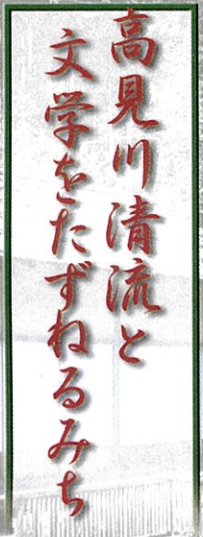 高見川清流と
文学をたずねるみち